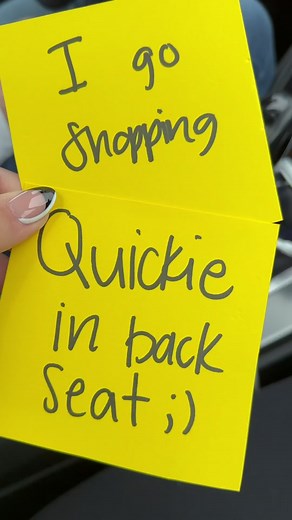 I go
shopping
Quickie
in back
seat ;)